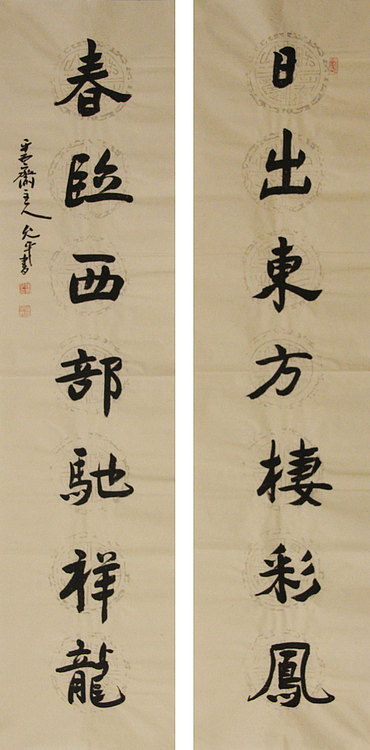 日出東方棲彩鳳
春臨西部馳祥龍
齋主人
書